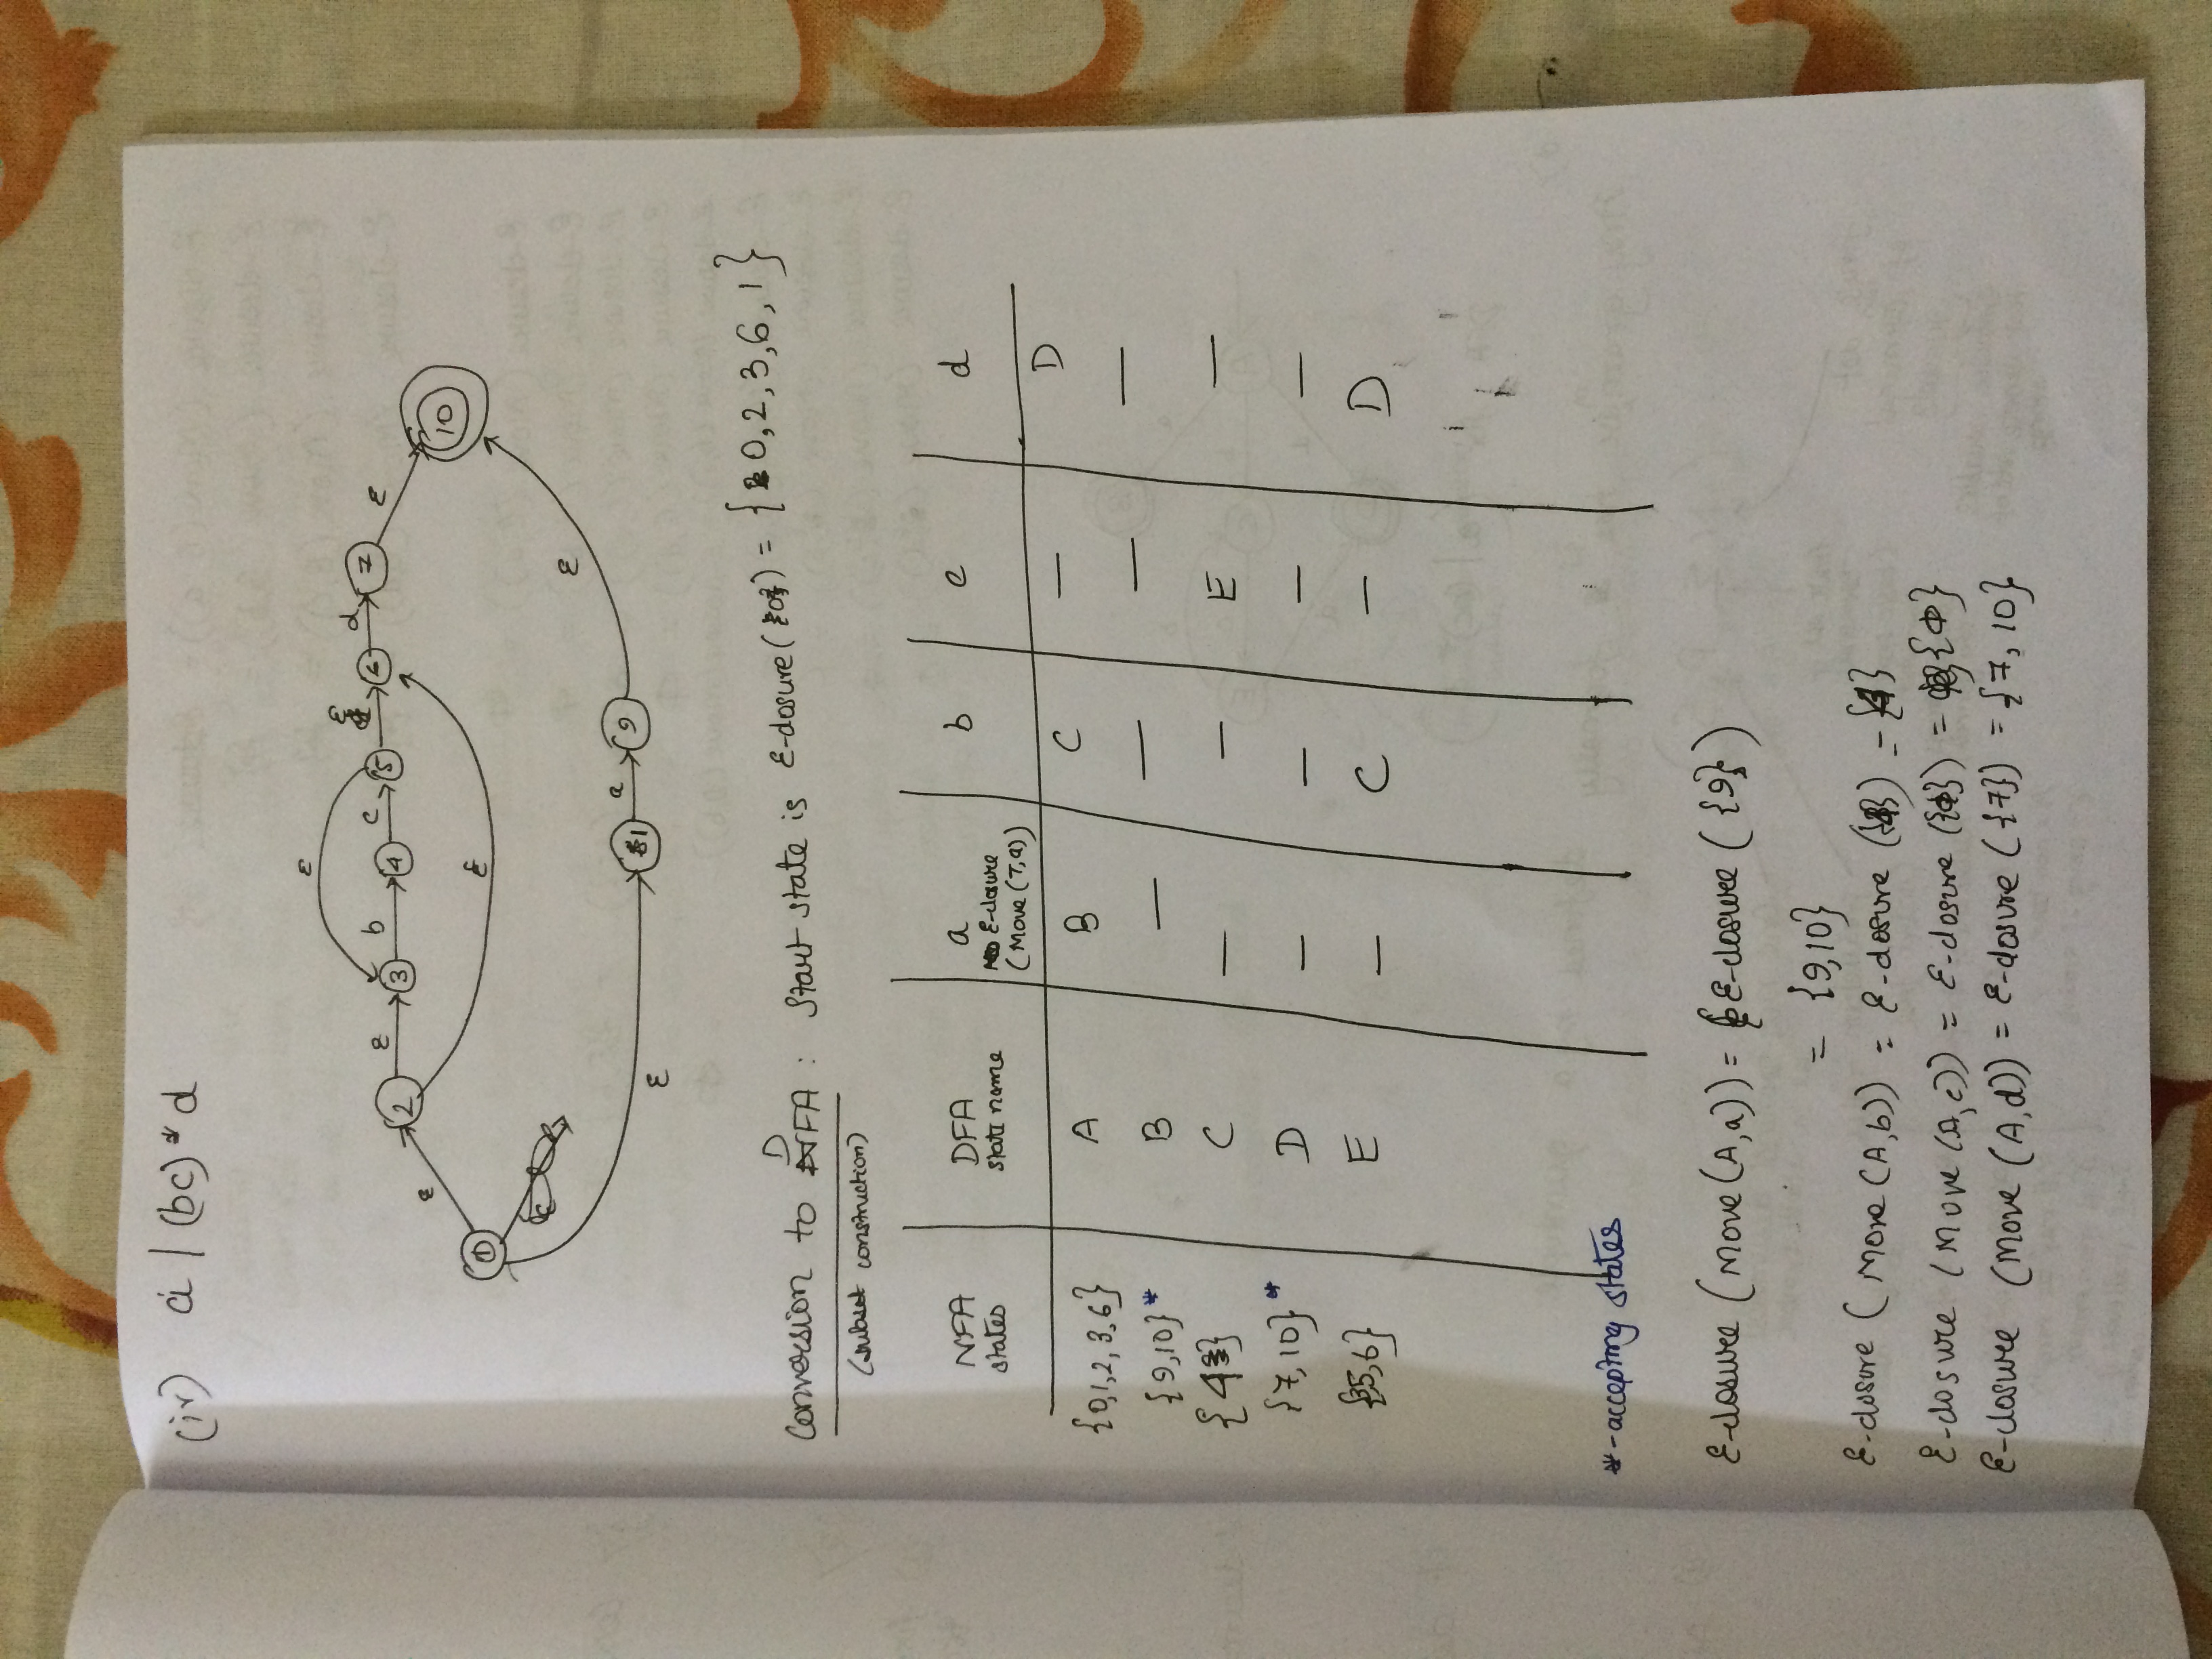 (iv) a | (bc)* d
ε
ε b c ε d ε
2 3 4 5 6 7
ε
10
0
ε
ε
a ε
1 9
ε
Conversion to DFA : Start state is ε-closure({0}) = {0,2,3,6,1}
(subset construction)
NFA states DFA state name a ε-closure (Move(T,a)) b c d
{0,1,2,3,6} A B C — D
{9,10}* B — — — —
{4} C — — E —
{7,10}* D — — — —
{3,5,6} E — C — D
*-accepting states
ε-closure (Move(A,a)) = ε-closure ({9})
= {9,10}
ε-closure (Move(A,b)) = ε-closure ({4}) = {4}
ε-closure (Move(A,c)) = ε-closure ({ϕ}) = {ϕ}
ε-closure (Move(A,d)) = ε-closure ({7}) = {7, 10}